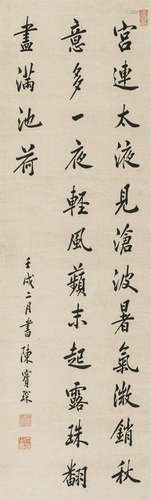 宮連太液見滄波暑氣微銷秋
意多一夜輕風蘋末起露珠翻
盡滿池荷
壬戌二月書陳寶琛